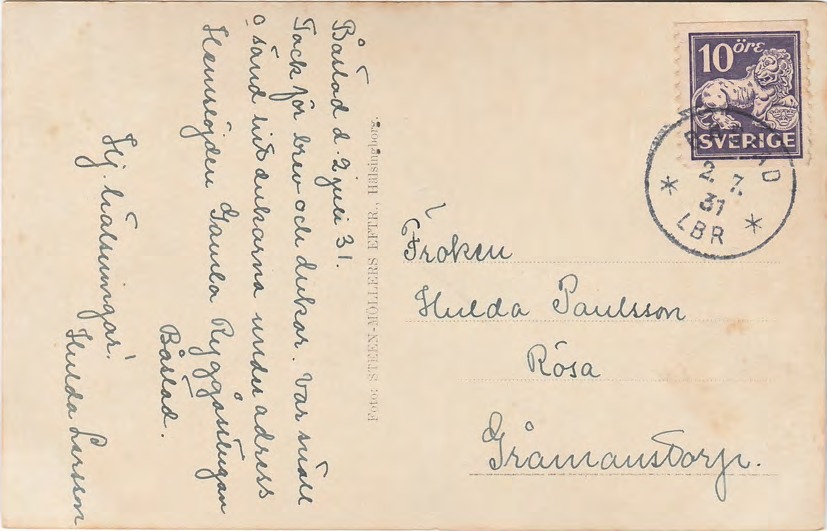 Båstad d. 2 juli 31.
Tack för brev och dukar. Var snäll
o sänd hit dukarna under adress
Hemslöjden Gamla Ryggåsstugan
Båstad.
Hj. hälsningar!
Hulda Larsson
Foto: STEEN-MÖLLERS EFTR., Hälsingborg.
10 öre
SVERIGE
BÅSTAD
2. 7.
31
* LBR *
Fröken
Hulda Paulsson
Rösa
Gråmanstorp.